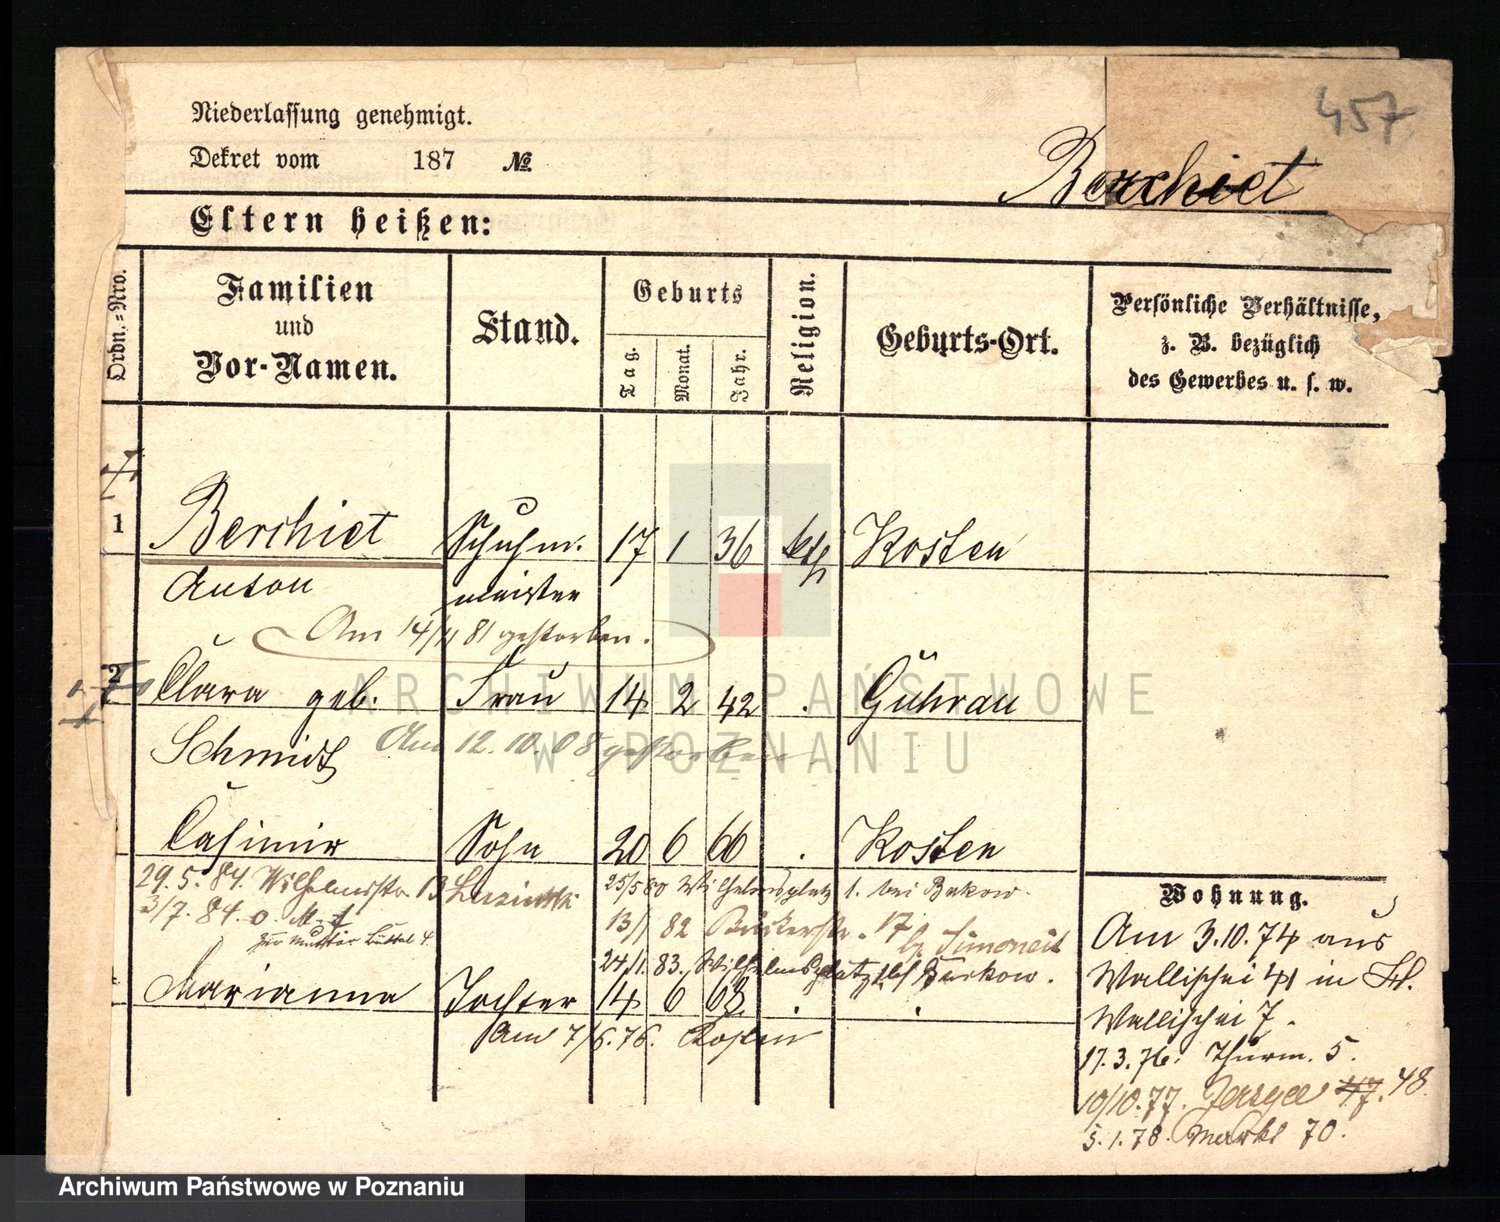 457
Niederlassung genehmigt.
Dekret vom 187 №
Berchiet
Eltern heißen:
Ordn.-Nro.
Familien und Vor-Namen.
Stand.
Geburts
Tag.
Monat.
Jahr.
Religion.
Geburts-Ort.
Persönliche Verhältnisse,
z. B. bezüglich
des Gewerbes u. s. w.
1 Berchiet Schuhm. 17 1 36 kth Kosten
Anton meister
Am 14/11 81 gestorben.
2 Clara geb. Frau 14 2 42 . Guhrau
Schmidt Am 12.10.08 gestorben
Casimir Sohn 20 6 60 . Kosten
29.5.84. Wilhelmsstr. 13
25/5 80 Wilhelmsplatz 1. bei
3/7. 84. o. M.
13/1 82 17 Simoneit
zur Mutter Büttel 4.
24/1. 83. Wilhelmsplatz
Marianna Tochter 14 6 68. . .
Am 7/6.76. Kosten
Wohnung.
Am 3.10.74 aus
Wallischei 41 in
Wallischei 7.
17.3.76. Thurm. 5.
10/10.77. 47. 48
5.1.78. Markt 70.
ARCHIWUM PAŃSTWOWE
W POZNANIU
Archiwum Państwowe w Poznaniu